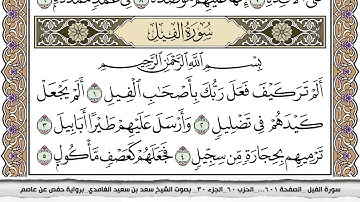 سُورَةُ الفِيلِ
بِسْمِ اللَّهِ الرَّحْمَٰنِ الرَّحِيمِ
أَلَمْ تَرَ كَيْفَ فَعَلَ رَبُّكَ بِأَصْحَٰبِ ٱلْفِيلِ ١ أَلَمْ يَجْعَلْ
كَيْدَهُمْ فِي تَضْلِيلٍ ٢ وَأَرْسَلَ عَلَيْهِمْ طَيْرًا أَبَابِيلَ ٣
تَرْمِيهِم بِحِجَارَةٍ مِّن سِجِّيلٍ ٤ فَجَعَلَهُمْ كَعَصْفٍ مَّأْكُولٍ ٥
سورة الفيل _الصفحة ٦٠١_... الحزب ٦٠_الجزء ٣٠_ بصوت الشيخ سعد بن سعيد الغامدي_برواية حفص عن عاصم